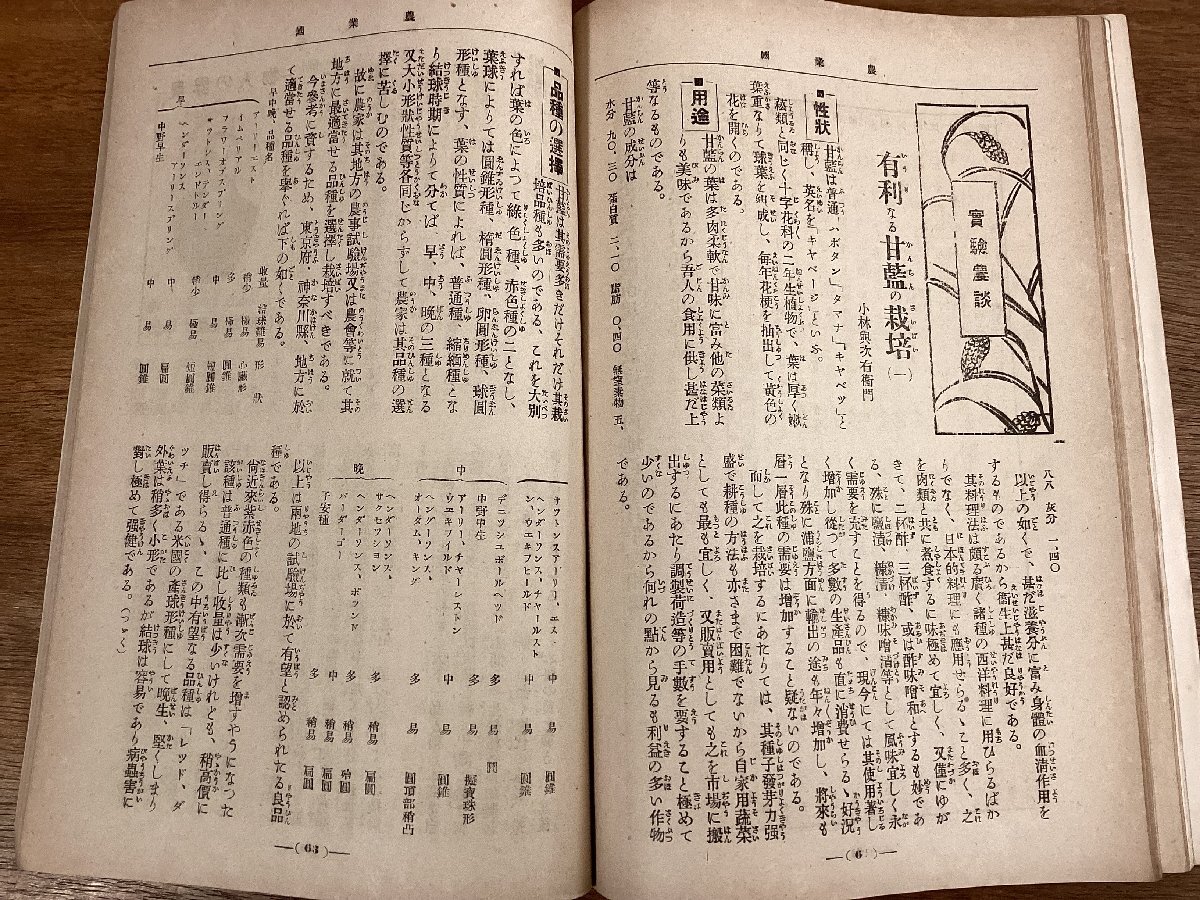 國業農
實驗農談
有利なる甘藍の栽培(一)
小林與次右衞門
■性狀
甘藍は普通「ハボタン」「タマナ」「キャベツ」と
稱し、英名を「キャベージ」といふ。
菘類と同じく十字花科の二年生植物で、葉は厚く嫩
葉重なりて球葉を組成し、毎年花梗を抽出して黃色の
花を開くのである。
■用途
甘藍の葉は多肉柔軟で甘味に富み他の菜類よ
りも美味であるから吾人の食用に供し甚だ上
等なるものである。
甘藍の成分は
水分 九〇、三〇 蛋白質 二、二〇 脂肪 〇、四〇 無窒素物 五、
八八 灰分 一、四〇
以上の如くで、甚だ滋養分に富み身體の血淸作用を
するものであるから衞生上甚だ良好である。
其料理法は頗る廣く諸種の西洋料理に用ひらるばか
りでなく、日本的料理にも應用せらるゝこと多く、之
を肉類と共に煮食するに味極めて宜しく、又僅にゆが
きて、二杯酢、三杯酢、或は酢味噌和とするも妙であ
る、殊に鹽漬、糠漬、糠味噌漬等として風味宜しく永
く需要を充すことを得るので、現今にては其使用著し
く增加し從つて多數の生產品も直に消費せらるゝ好況
となり殊に浦鹽方面に輸出の途も年々增加し、將來も
層一層此種の需要は增加すること疑ないのである。
而して之を栽培するにあたりては、其種子發芽力强
盛で耕種の方法も亦さまで困難でないから自家用蔬菜
としても最も宜しく、又販賣用としても之を市場に搬
出するにあたり調製荷造等の手數を要すること極めて
少いのであるから何れの點から見るも利益の多い作物
である。
國業農
■品種の選擇
甘藍は其需要多きだけそれだけ其栽
培品種も多いのである、これを大別
すれば葉の色によつて綠色種、赤色種の二となし、
葉球によりては圓錐形種、橢圓形種、卵圓形種、球圓
形種となす、葉の性質によれば、普通種、縮緬種とな
り結球時期によりて分てば、早、中、晩の三種となる
又大小形狀性質等各同じからずして農家は其品種の選
擇に苦しむのである。
故に農家は其地方の農事試驗場又は農會等に就て其
地方に最適當せる品種を選擇し栽培すべきである。
今參考に資するため、東京府、神奈川縣、地方に於
て適當せる品種を擧ぐれば下の如くである。
早中晩、品種名 收量 結球難易 形狀
早
アーリーエスト 稍少 極易 心臟形
イムペリアル 多 極易 圓錐
フラワーオブスプリング
サットンス、テンダー
エンドトルー 稍少 極易 短圓錐
ヘンダーソンス
アーリースプリング 中 易 扁圓
中野早生 中 易 圓錐
サットンスアーリー、エスト 中 易 圓錐
ヘンダーソンス、チャールスト
ン、ウエキヒールド 中 易 圓錐
中
デニッシュボールヘッド 多 易 圓
中野中生 多 易 擬寶珠形
アーリー、チャーレストン
ウエキフィルド 中 易 圓錐
ヘンダーソンス、
オータム、キング 多 易 圓頂部稍凸
晩
ヘンダーソンス、
サクセツション 多 稍易 扁圓
ヘンダーソンス、ボツンド 多 稍易 略圓
バーダーゴー 中 稍易 扁圓
子安種 多 稍易 扁圓
以上は兩地の試驗場に於て有望と認められたる良品
種である。
尙近來紫赤色の種類も漸次需要を增すやうになつた
該種は普通種に比し收量は少いけれども、稍高價に
販賣し得らるゝ、この中有望なる品種は「レッド、ダ
ッチ」である米國の產球形種にして晩生、堅くしまり
外葉は稍多く小形であるが結球は容易であり病蟲害に
對し極めて强健である。(つゞく)
(63)